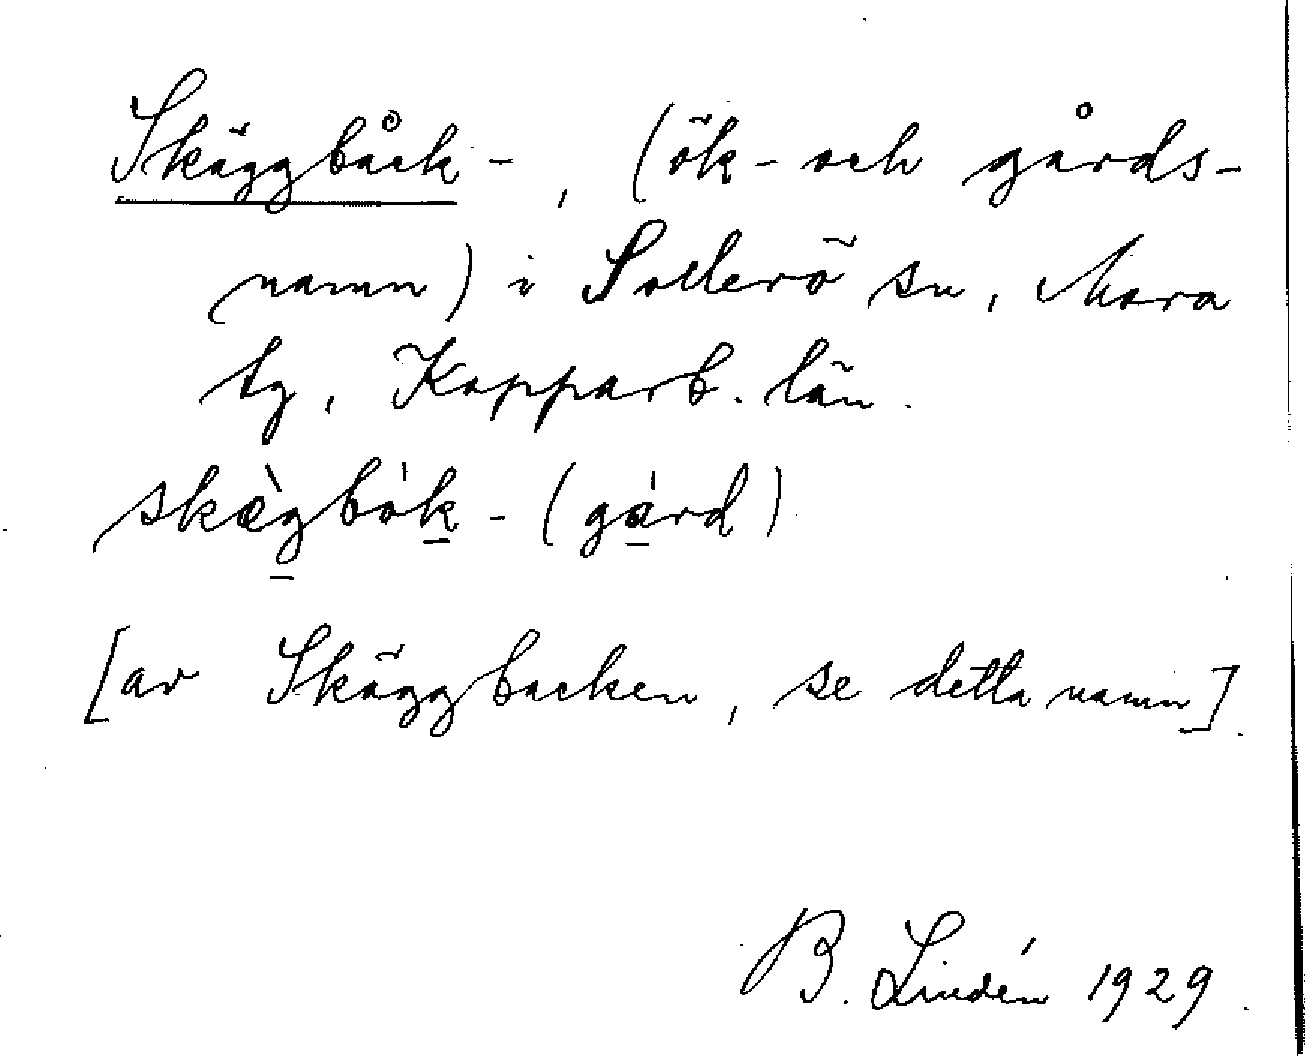 Skäggbåck-, (ök- och gårds-
namn) i Sollerö sn, Mora
tg, Kopparb. län.
skæ̀g̱bóḵ- (gá̱rd)
[av Skäggbacken, se detta namn].
B. Lindén 1929.